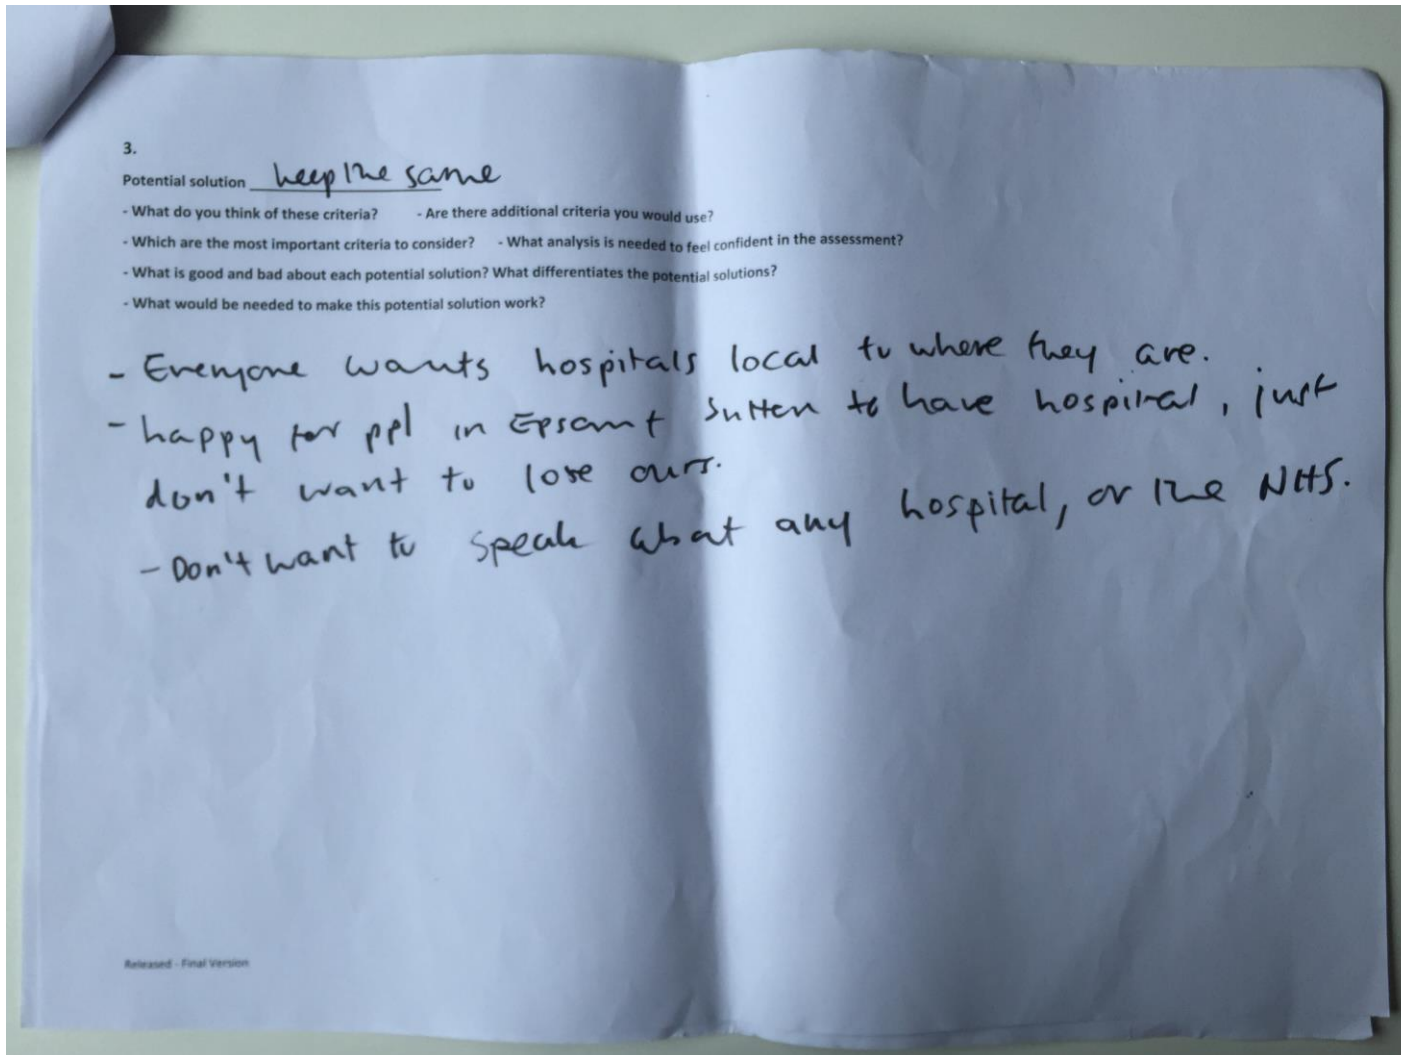 3.
Potential solution keep the same
- What do you think of these criteria? - Are there additional criteria you would use?
- Which are the most important criteria to consider? - What analysis is needed to feel confident in the assessment?
- What is good and bad about each potential solution? What differentiates the potential solutions?
- What would be needed to make this potential solution work?
- Everyone wants hospitals local to where they are.
- happy for ppl in Epsom + Sutton to have hospital, just
don't want to lose ours.
- Don't want to speak about any hospital, or the NHS.
Released - Final Version